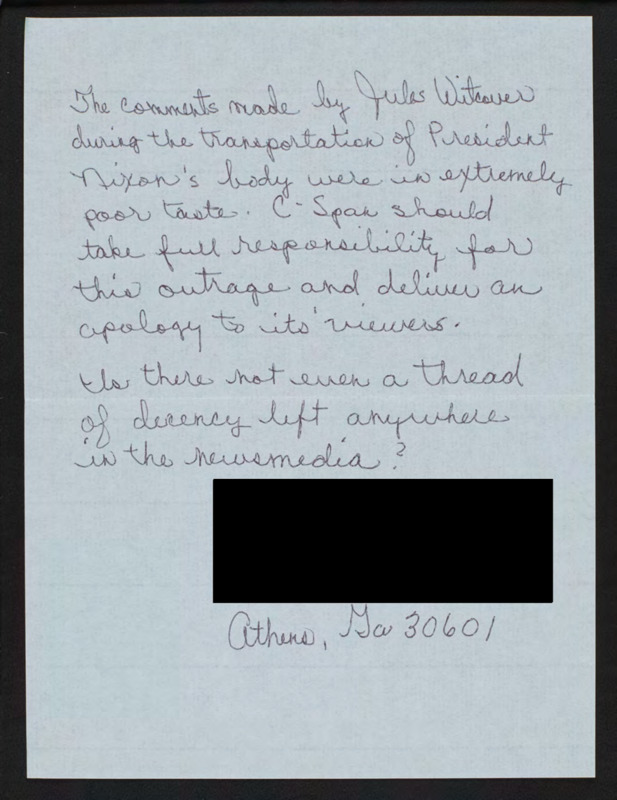 The comments made by Jules Witcover
during the transportation of President
Nixon's body were in extremely
poor taste. C-Span should
take full responsibility for
this outrage and deliver an
apology to its' viewers.
Is there not even a thread
of decency left anywhere
in the newsmedia?
Athens, Ga 30601